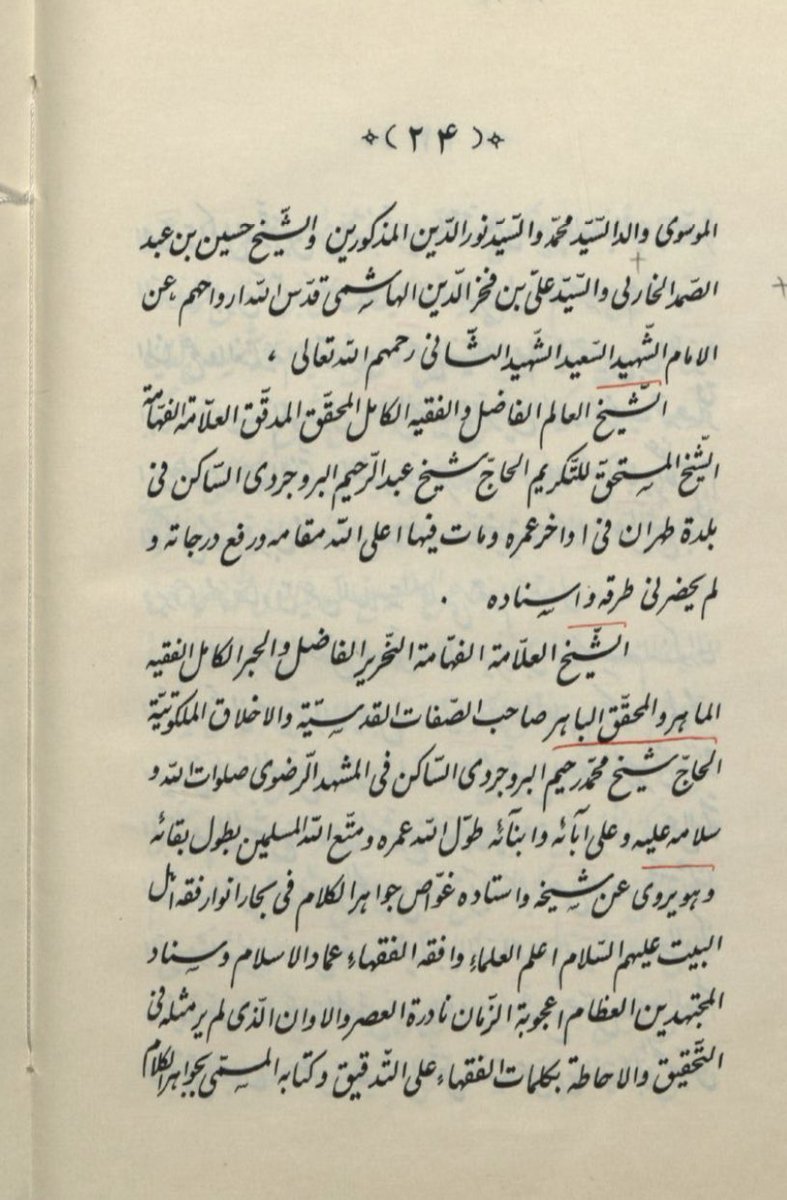 (۲۴)
الموسوی والد السّیّد محمّد والسّیّد نورالدّین المذکورین والشّیخ حسین بن عبد
الصّمد الخارلی والسّیّد علیّ بن فخرالدّین الهاشمی قدّس اللّه ارواحهم، عن
الامام الشّهید السّعید الشّهید الثّانی رحمهم اللّه تعالی ،
الشّیخ العالم الفاضل والفقیه الکامل المحقّق المدقّق العلّامة الفهّامة
الشّیخ المستحقّ للتّکریم الحاجّ شیخ عبدالرّحیم البروجردی السّاکن فی
بلدة طهران فی اواخر عمره ومات فیها اعلی اللّه مقامه ورفع درجاته و
لم یحضرنی طرقه واسناده .
الشّیخ العلّامة الفهّامة النّحریر الفاضل والحبر الکامل الفقیه
الماهر والمحقّق الباهر صاحب الصّفات القدسیّة والاخلاق الملکوتیّة
الحاجّ شیخ محمّد رحیم البروجردی السّاکن فی المشهد الرّضوی صلوات اللّه و
سلامه علیه وعلی آبآئه وابنآئه طوّل اللّه عمره ومتّع اللّه المسلمین بطول بقائه
وهو یروی عن شیخه واستاده غوّاص جواهر الکلام فی بحار انوار فقه اهل
البیت علیهم السّلام اعلم العلماء وافقه الفقهاء عماد الاسلام وسناد
المجتهدین العظام اعجوبة الزّمان نادرة العصر والاوان الّذی لم یر مثله فی
التّحقیق والاحاطة بکلمات الفقهاء علی التّدقیق وکتابه المسمّی بجواهر الکلام